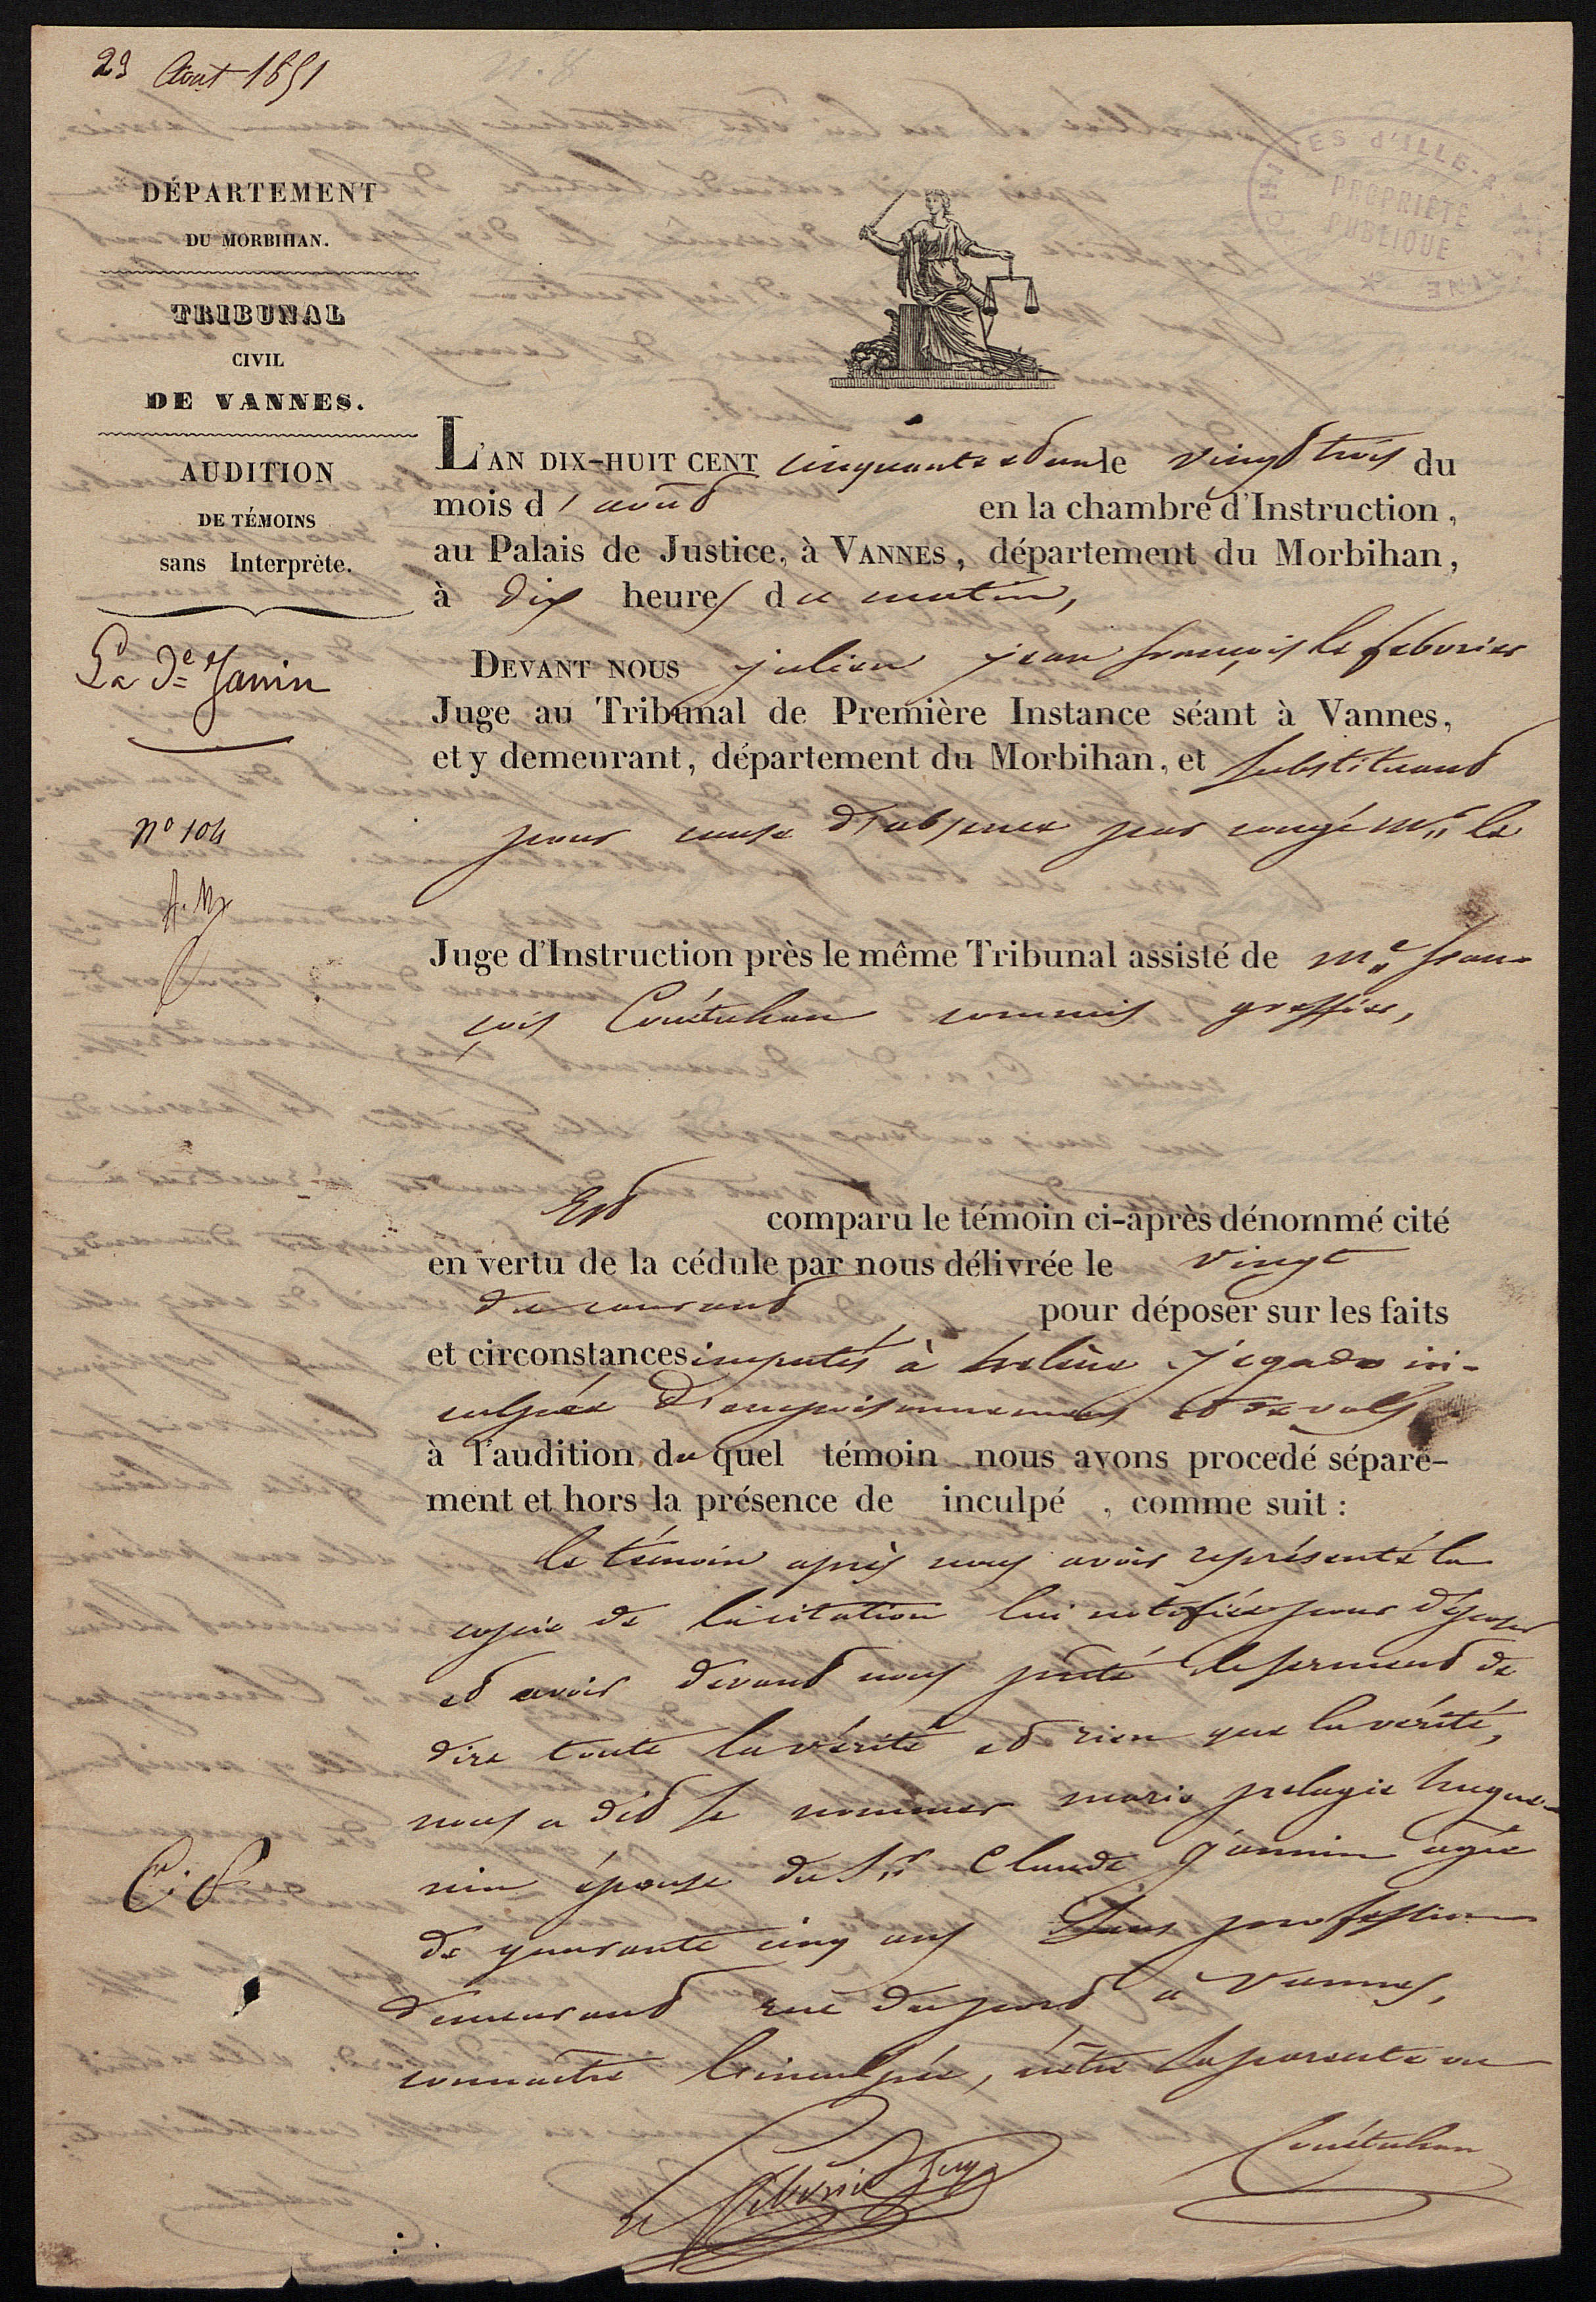 23 Aout 1851
n. 8
DÉPARTEMENT
DU MORBIHAN.
TRIBUNAL
CIVIL
DE VANNES.
AUDITION
DE TÉMOINS
sans Interprète.
La De Janin
no 104
ARCHIVES d'ILLE-&-VILAINE
PROPRIÉTÉ
PUBLIQUE
L'AN DIX-HUIT CENT cinquante et un le vingt trois du
mois d'août en la chambre d'Instruction,
au Palais de Justice, à VANNES, département du Morbihan,
à dix heures du matin,
DEVANT NOUS julien jean françois le febvrier
Juge au Tribunal de Première Instance séant à Vannes,
et y demeurant, département du Morbihan, et substituant
pour cause d'absence par congé Mr le
Juge d'Instruction près le même Tribunal assisté de Me fran-
çois Couëtuhan commis greffier,
Est comparu le témoin ci-après dénommé cité
en vertu de la cédule par nous délivrée le vingt
du courant pour déposer sur les faits
et circonstances imputés à helène jegado in-
culpée d'empoisonnements et de vols
à l'audition duquel témoin nous avons procedé séparé-
ment et hors la présence de inculpé , comme suit :
le témoin après nous avoir représenté la
copie de la citation lui notifiée pour déposer
et avoir devant nous prêté le serment de
dire toute la vérité et rien que la vérité,
nous a dit se nommer marie pelagie hugue-
nin épouse du Sr Claude jannin agée
de quarante cinq ans sans profession
demeurant rue du port à Vannes,
connaître l'inculpée, n'être sa parente ou
C. f
Le Febvrier Juge
Couëtuhan